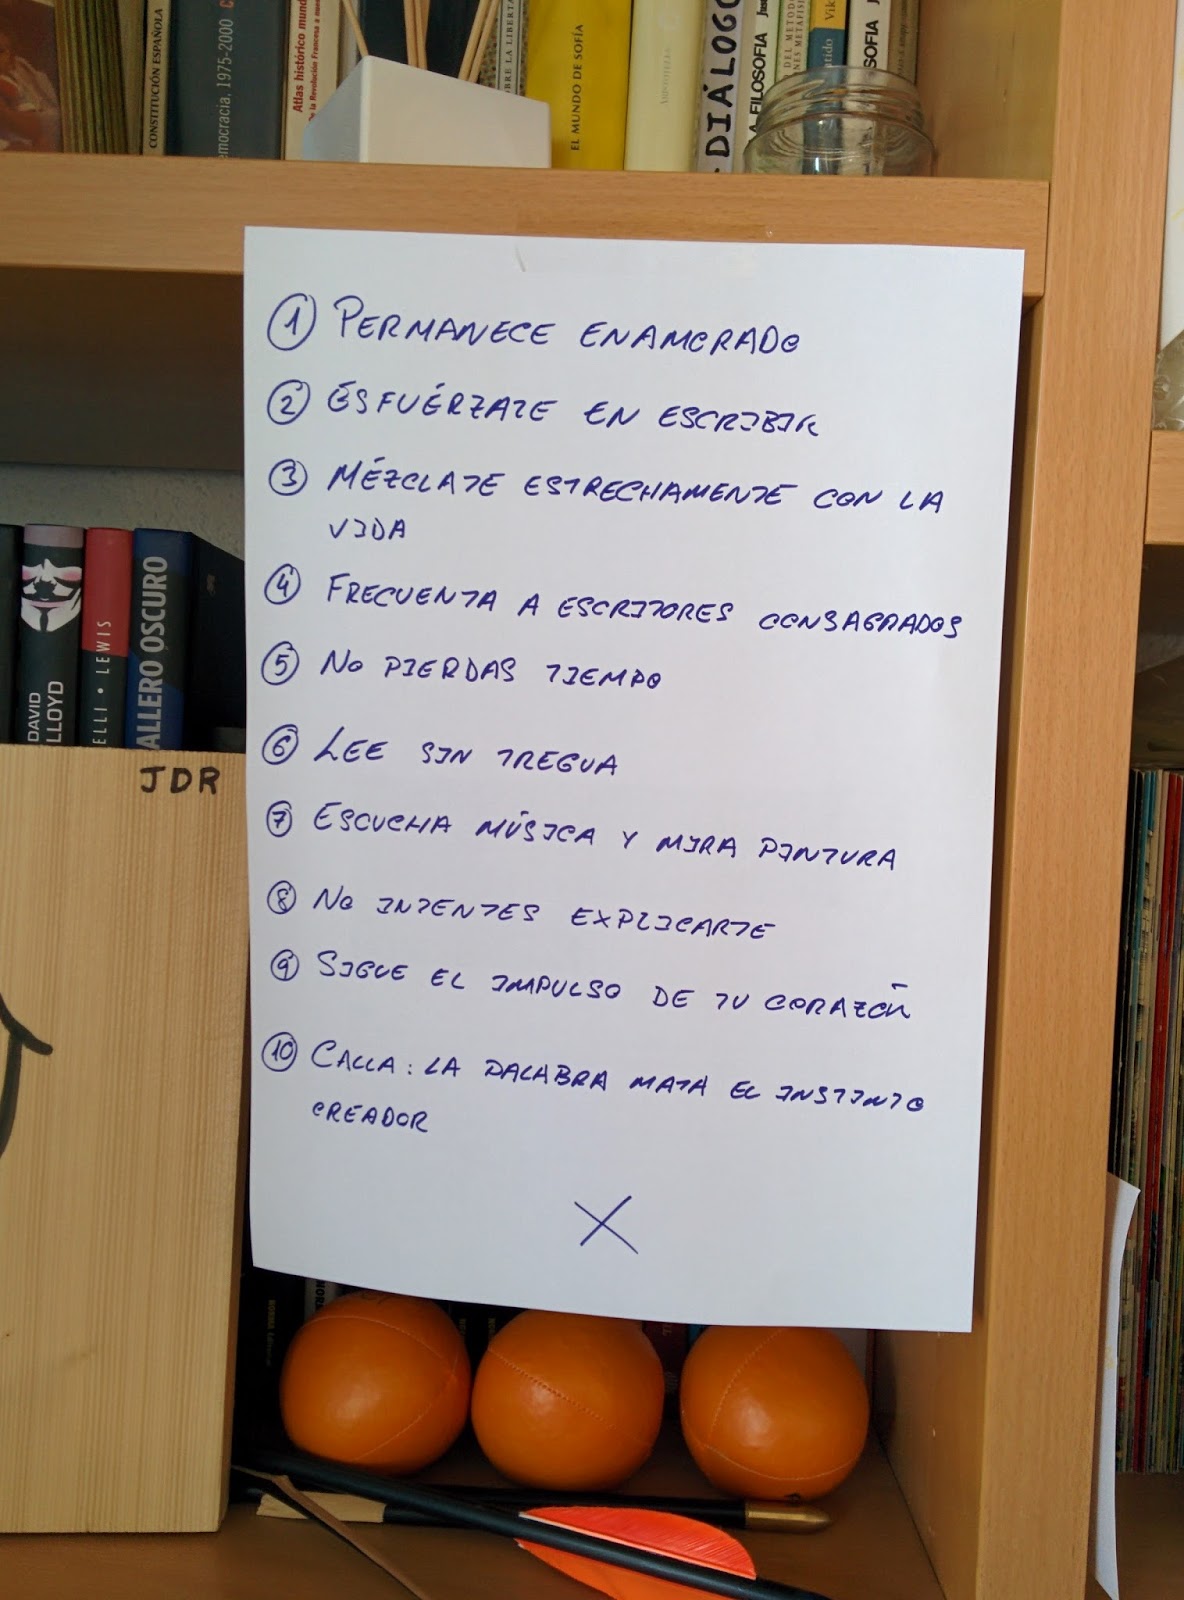 CONSTITUCIÓN ESPAÑOLA
mocracia, 1975-2000
Atlas histórico mund
la Revolución Francesa a nues
BRE LA LIBERTA
EL MUNDO DE SOFÍA
DIÁLOGO
A FILOSOFIA
DEL METODO
NES METAFISI
tido
Vik
SOFIA
① PERMANECE ENAMORADO
② ESFUÉRZATE EN ESCRIBIR
③ MÉZCLATE ESTRECHAMENTE CON LA
VIDA
④ FRECUENTA A ESCRITORES CONSAGRADOS
⑤ NO PIERDAS TIEMPO
⑥ LEE SIN TREGUA
⑦ ESCUCHA MÚSICA Y MIRA PINTURA
⑧ NO INTENTES EXPLICARTE
⑨ SIGUE EL IMPULSO DE TU CORAZÓN
⑩ CALLA: LA PALABRA MATA EL INSTINTO
CREADOR
X
DAVID
LLOYD
ELLI • LEWIS
ALLERO OSCURO
JDR